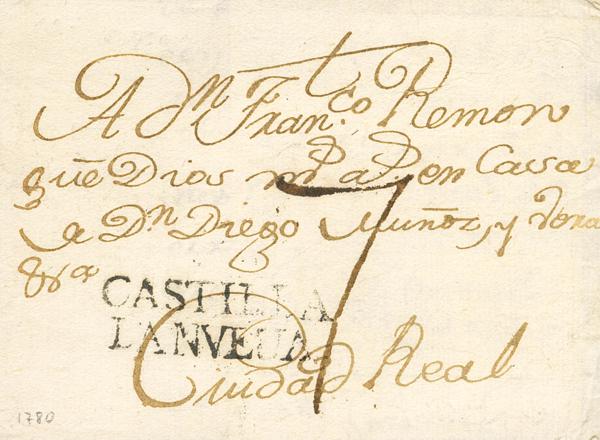 A Dn Franco. Remon
que Dios ms as en Cassa
a Dn Diego Muñoz, y
7
CASTILLA
LANVEUA
Ciudad Real
1780